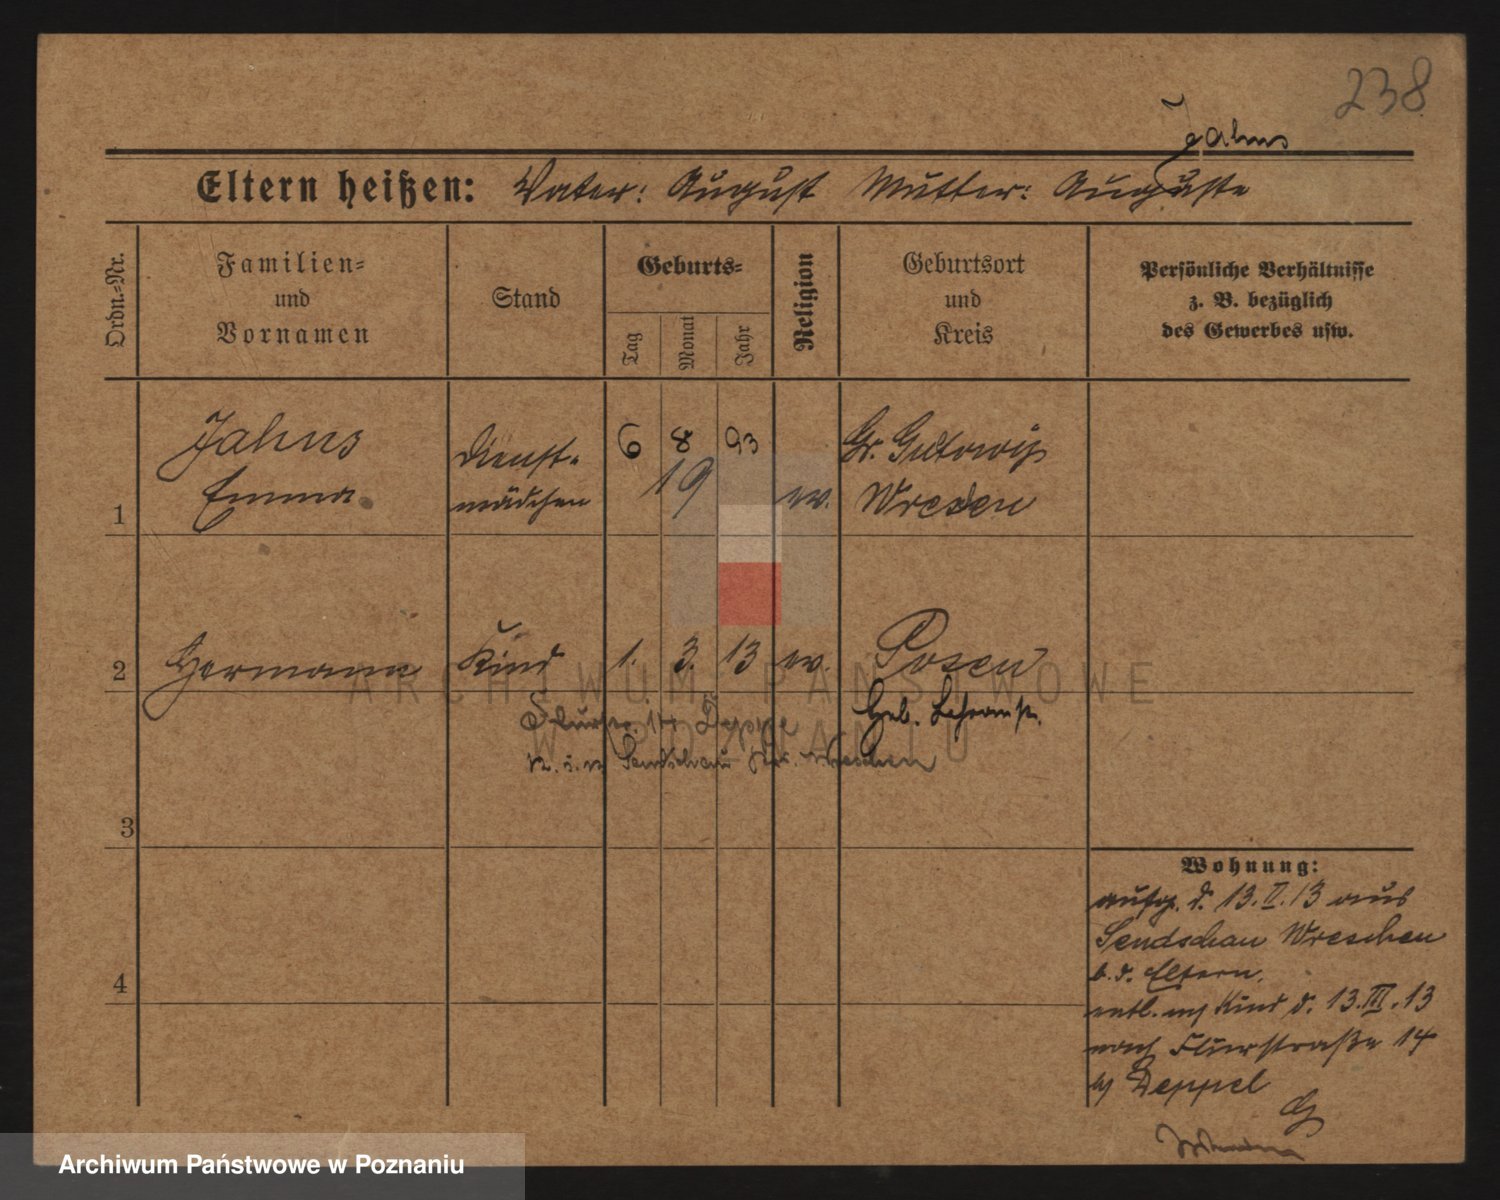 238
Jahns
Eltern heißen: Vater: August Mutter: Auguste
Ordn.-Nr.
Familien-
und
Vornamen
Stand
Geburts-
Tag
Monat
Jahr
Religion
Geburtsort
und
Kreis
Persönliche Verhältnisse
z. B. bezüglich
des Gewerbes usw.
1
Jahns
Emma
Dienst-
mädchen
6 8 93
19
ev.
Gr. Gutowy
Wreschen
2
Hermann
Kind
1. 3. 13
ev.
Posen
Geb. Lehranst.
Flurstr. 14 Deppel
Sendschau Wreschen
3
4
Wohnung:
aufg. d. 13.II.13 aus
Sendschau Wreschen
b. d. Eltern.
entl. m/ Kind d. 13.III.13
nach Flurstraße 14
b/ Deppel
ARCHIWUM PAŃSTWOWE
W POZNANIU
Archiwum Państwowe w Poznaniu